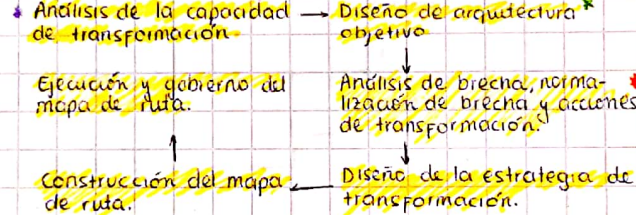 Análisis de la capacidad
de transformación.
Diseño de arquitectura
objetivo
Análisis de brecha, norma-
lización de brecha y acciones
de transformación.
Diseño de la estrategia de
transformación.
Construcción del mapa
de ruta.
Ejecución y gobierno del
mapa de ruta.